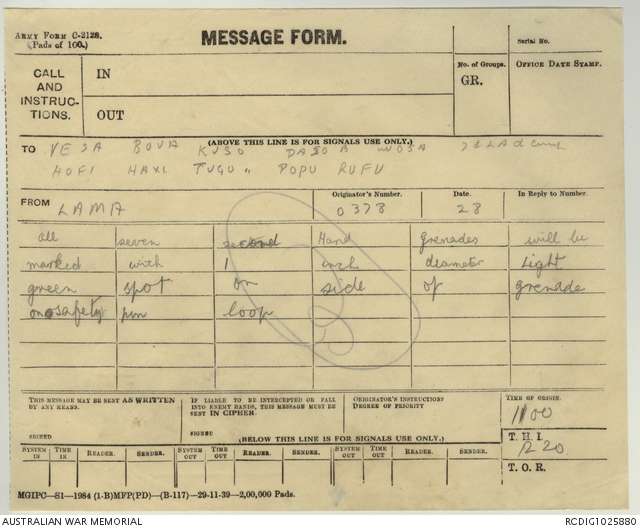 ARMY FORM C-2128.
(Pads of 100.)
MESSAGE FORM.
Serial No.
CALL
AND
INSTRUC-
TIONS.
IN
OUT
No. of Groups.
GR.
OFFICE DATE STAMP.
(ABOVE THIS LINE IS FOR SIGNALS USE ONLY.)
TO VESA BOVA KUSO
HOFI HAXI TUGU POPU RUFU
FROM LAMA
Originator's Number. 0378
Date. 28
In Reply to Number.
all seven second Hand Grenades will be
marked with 1 inch diameter light
green spot on side of grenade
on safety pin loop
THIS MESSAGE MAY BE SENT AS WRITTEN
BY ANY MEANS.
SIGNED
IF LIABLE TO BE INTERCEPTED OR FALL
INTO ENEMY HANDS, THIS MESSAGE MUST BE
SENT IN CIPHER.
SIGNED
ORIGINATOR'S INSTRUCTIONS
DEGREE OF PRIORITY
TIME OF ORIGIN.
1100
(BELOW THIS LINE IS FOR SIGNALS USE ONLY.)
T. H. I.
1220
T. O. R.
SYSTEM IN TIME IN READER. SENDER. SYSTEM OUT TIME OUT READER. SENDER. SYSTEM OUT TIME OUT READER. SENDER.
MGIPC—S1—1984 (1-B)MFP(PD)—(B-117)—29-11-39—2,00,000 Pads.
AUSTRALIAN WAR MEMORIAL
RCDIG1025880